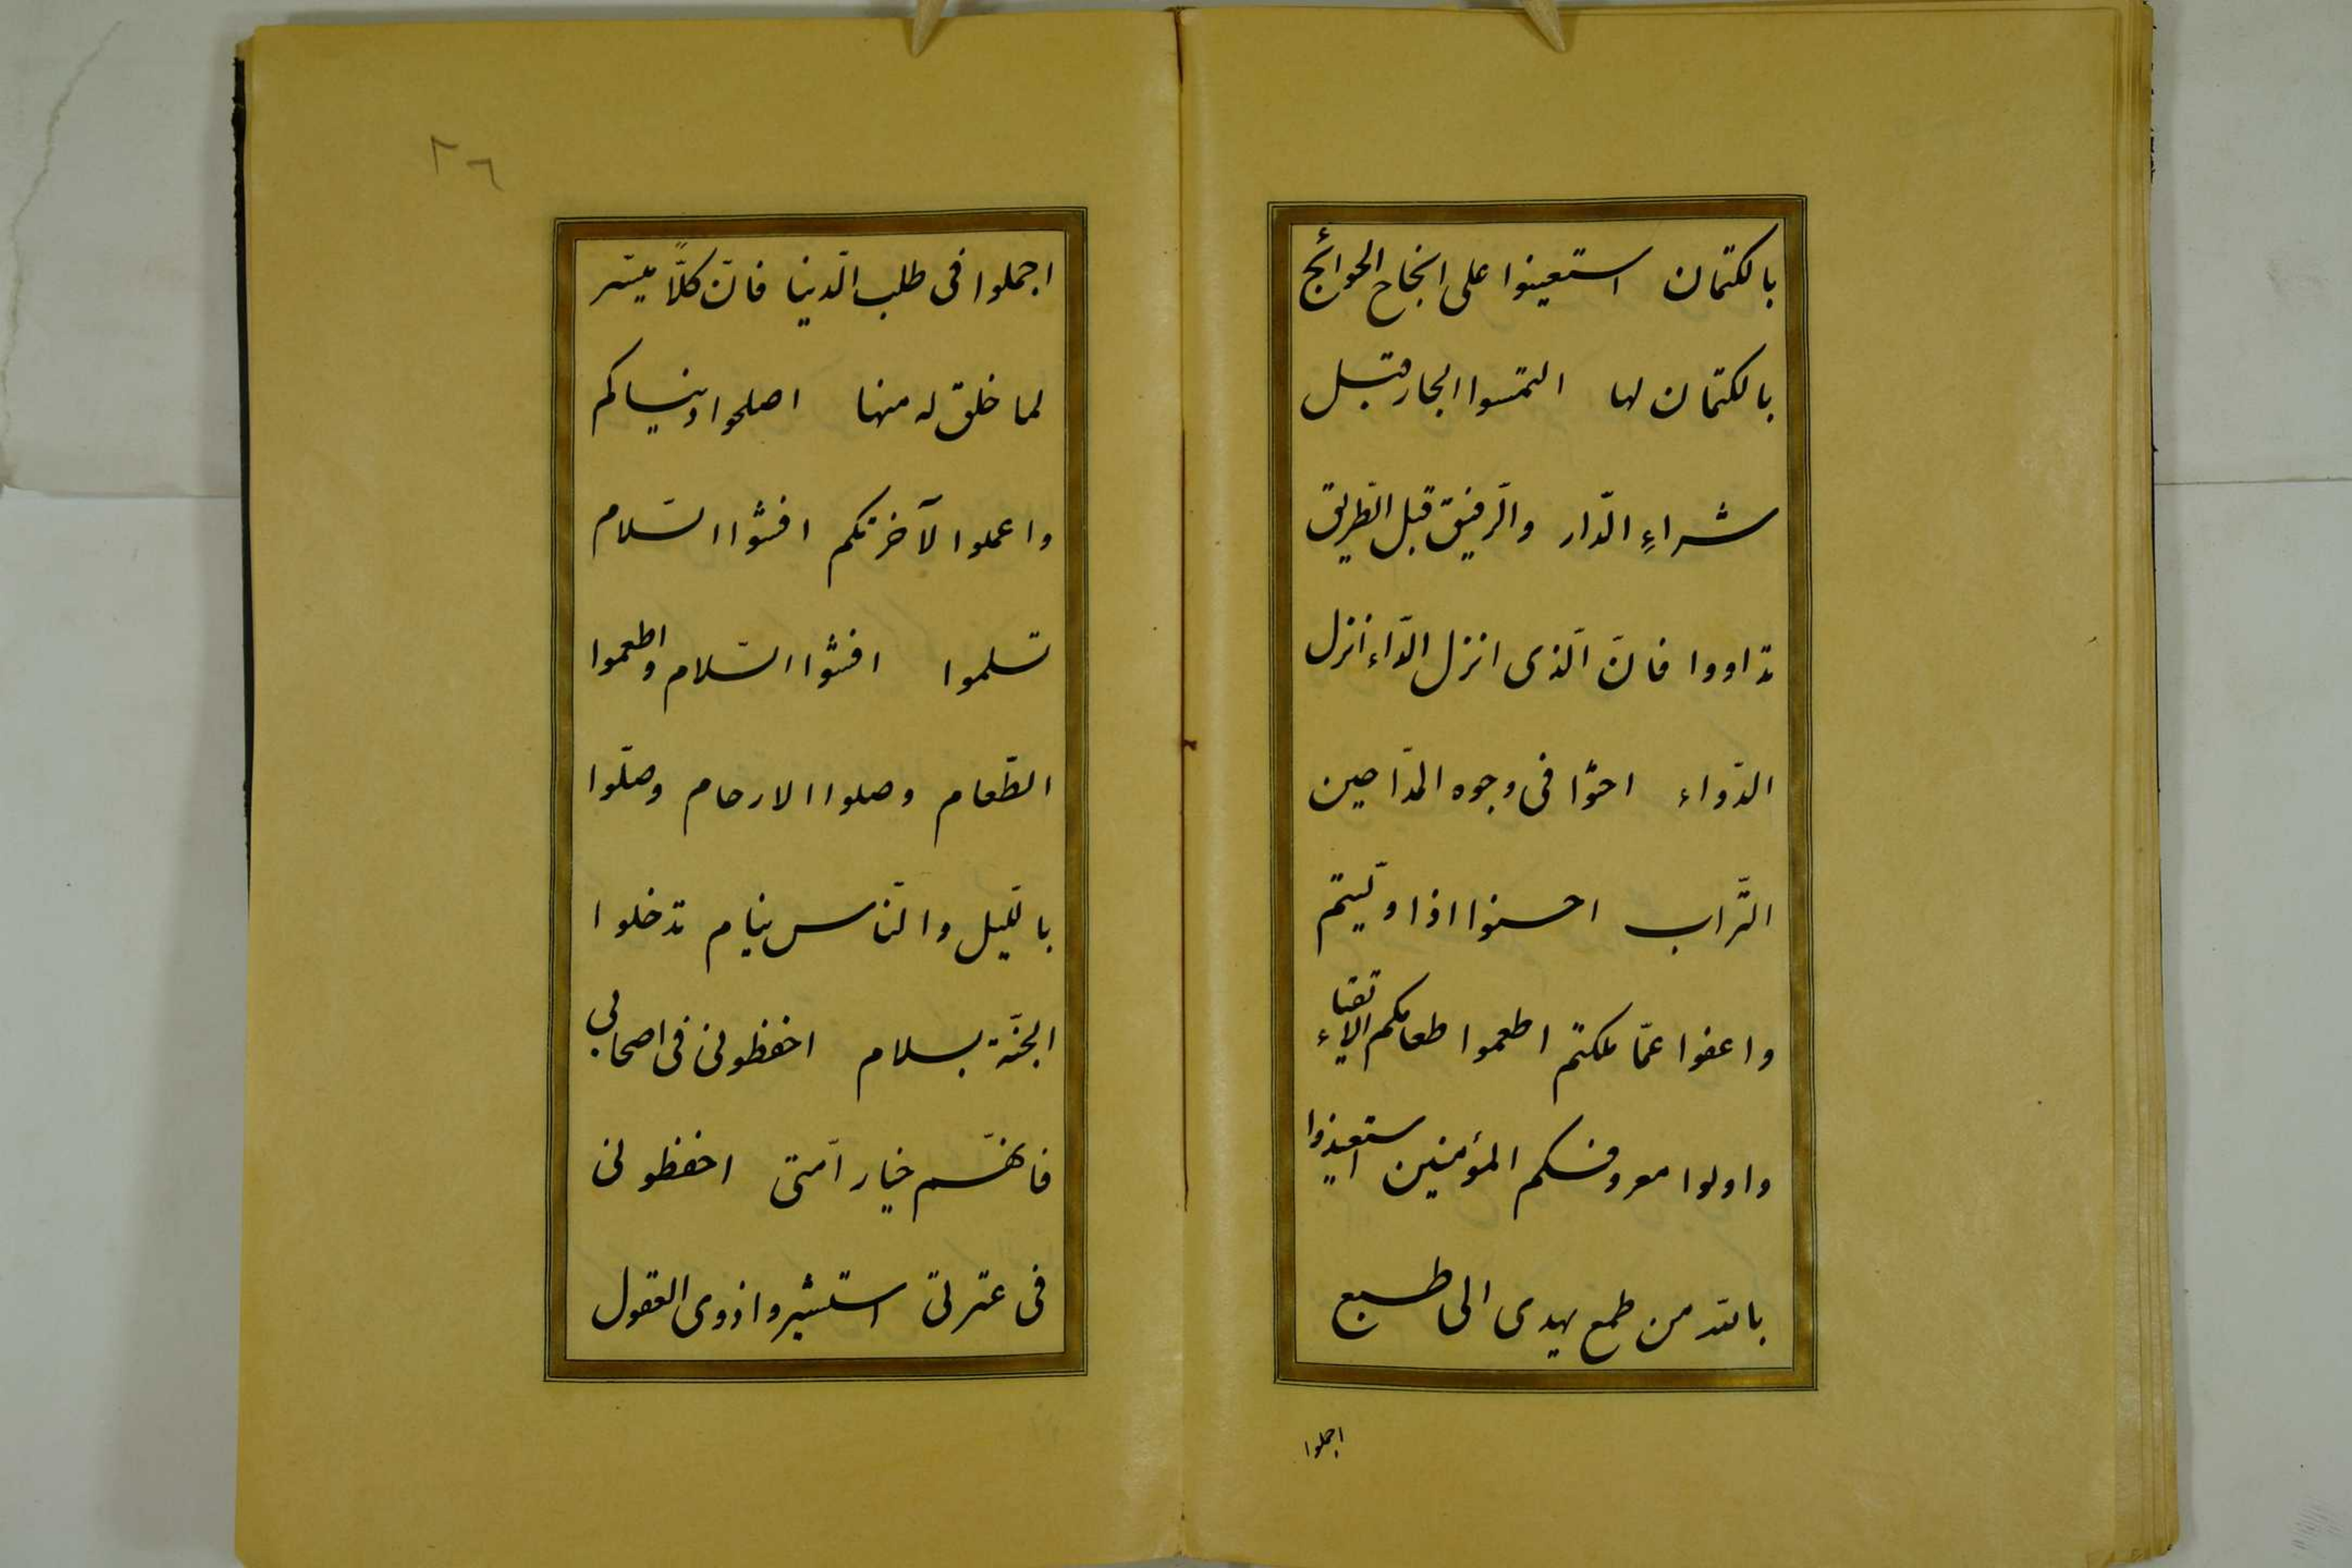 بالكتمان استعينوا على انجاح الحوائج
بالكتمان لها التمسوا الجار قبل
شراءِ الدّار والرّفيق قبل الطّريق
تداووا فانّ الّذى انزل الدّاء انزل
الدّواء احثوا فى وجوه المدّاحين
التّراب احسنوا اذا وليتم
واعفوا عمّا ملكتم اطعموا طعامكم الاتقياء
واولوا معروفكم المؤمنين استعيذوا
بالله من طمع يهدى الى طبع
اجملوا
٢٦
اجملوا فى طلب الدّنيا فانّ كلّاً ميسّر
لما خلق له منها اصلحوا دنياكم
واعملوا لآخرتكم افشوا السّلام
تسلموا افشوا السّلام واطعموا
الطّعام وصلوا الارحام وصلّوا
باللّيل والنّاس نيام تدخلوا
الجنّة بسلام احفظونى فى اصحابى
فانّهم خيار امّتى احفظونى
فى عترتى استشيروا ذوى العقول